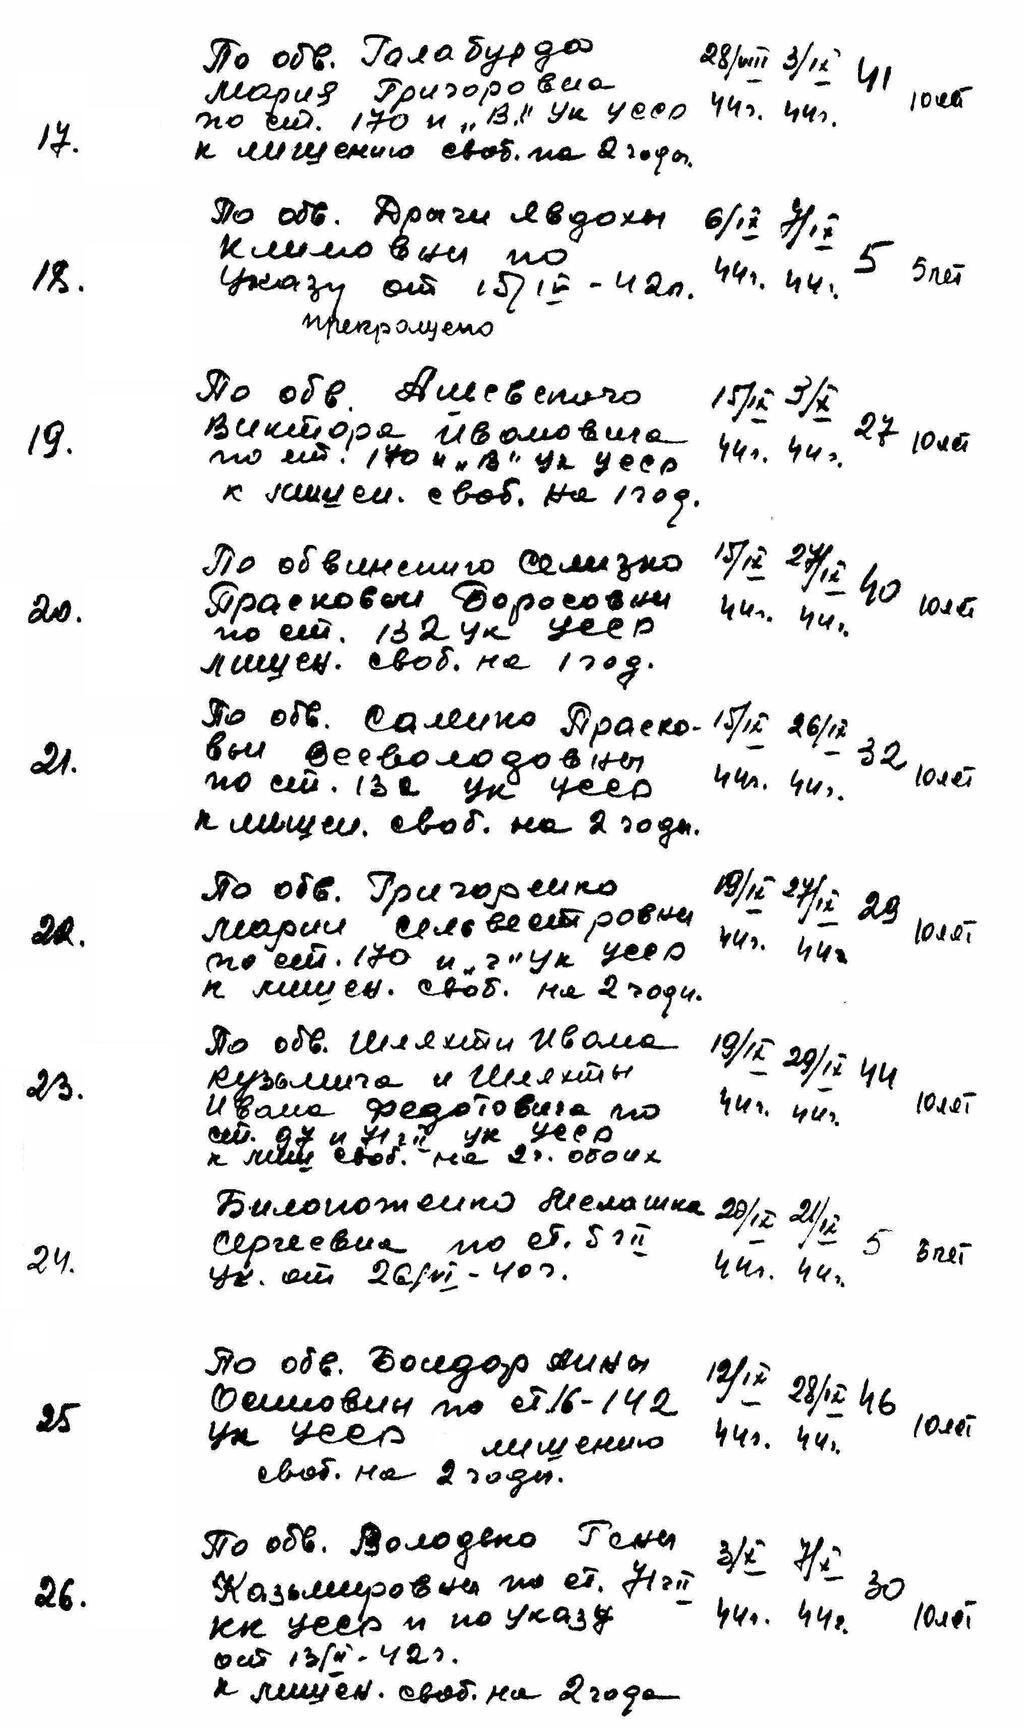 17. По обв. Галабурда 28/VIII 3/IX 41 10 лет
Мария Григоровна 44г. 44г.
по ст. 170 и "В" УК УССР
к лишению своб. на 2 годы.
18. По обв. Драги Явдохы 6/IX 7/IX 5 5 лет
Климовны по 44г. 44г.
Указу от 15/IV - 42г.
прекращено
19. По обв. 15/IX 3/X 27 10 лет
Виктора Ивановича 44г. 44г.
по ст. 170 и "В" УК УССР
к лишен. своб. на 1 год.
20. По обвинению Селизко 15/IX 27/IX 40 10 лет
Прасковьи Борисовны 44г. 44г.
по ст. 132 УК УССР
лишен. своб. на 1 год.
21. По обв. Салинко Праско- 15/IX 26/IX 32 10 лет
вьи Всеволодовны 44г. 44г.
по ст. 132 УК УССР
к лишен. своб. на 2 годы.
22. По обв. Григоренко 19/IX 27/IX 29 10 лет
Марии Сельвестровны 44г. 44г.
по ст. 170 и "г" УК УССР
к лишен. своб. на 2 годы.
23. По обв. Шляхты Ивана 19/IX 29/IX 44 10 лет
Кузьмича и Шляхты 44г. 44г.
Ивана Федотовича по
ст. 97 и 71 ч II УК УССР
к лиш своб. на 2 г. обоих
24. Билоноженко Мелашка 20/IX 21/IX 5 5 лет
Сергеевна по ст. 5 ч II 44г. 44г.
Ук. от 26/VI - 40 г.
25 По обв. Бондар Анны 12/IX 28/IX 46 10 лет
Осиповны по ст. 16-142 44г. 44г.
УК УССР лишению
своб. на 2 годы.
26. По обв. Володько Гены 3/X 7/X 30 10 лет
Казьмировны по ст. 71 ч II 44г. 44г.
КК УССР и по указу
от 13/II - 42 г.
к лишен. своб. на 2 года